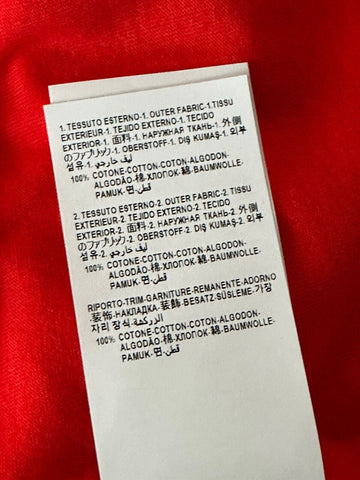 1.TESSUTO ESTERNO-1. OUTER FABRIC-1.TISSU
EXTERIEUR-1. TEJIDO EXTERNO-1. TECIDO
EXTERIOR-1. 面料-1. НАРУЖНАЯ ТКАНЬ-1. 外側
のファブリック-1. OBERSTOFF-1. DIŞ KUMAŞ-1. 외부
섬유-1. ليف خارجي
100% COTONE-COTTON-COTON-ALGODON-
ALGODÃO-棉-ХЛОПОК-綿-BAUMWOLLE-
PAMUK-면-قطن
2. TESSUTO ESTERNO-2. OUTER FABRIC-2. TISSU
EXTERIEUR-2. TEJIDO EXTERNO-2. TECIDO
EXTERIOR-2. 面料-2. НАРУЖНАЯ ТКАНЬ-2. 外側
のファブリック-2. OBERSTOFF-2. DIŞ KUMAŞ-2. 외부
섬유-2. ليف خارجي
100% COTONE-COTTON-COTON-ALGODON-
ALGODÃO-棉-ХЛОПОК-綿-BAUMWOLLE-
PAMUK-면-قطن
RIPORTO-TRIM-GARNITURE-REMANENTE-ADORNO
-装饰-НАКЛАДКА-装飾-BESATZ-SÜSLEME-가장
자리 장식-الزركشة
100% COTONE-COTTON-COTON-ALGODON-
ALGODÃO-棉-ХЛОПОК-綿-BAUMWOLLE-
PAMUK-면-قطن